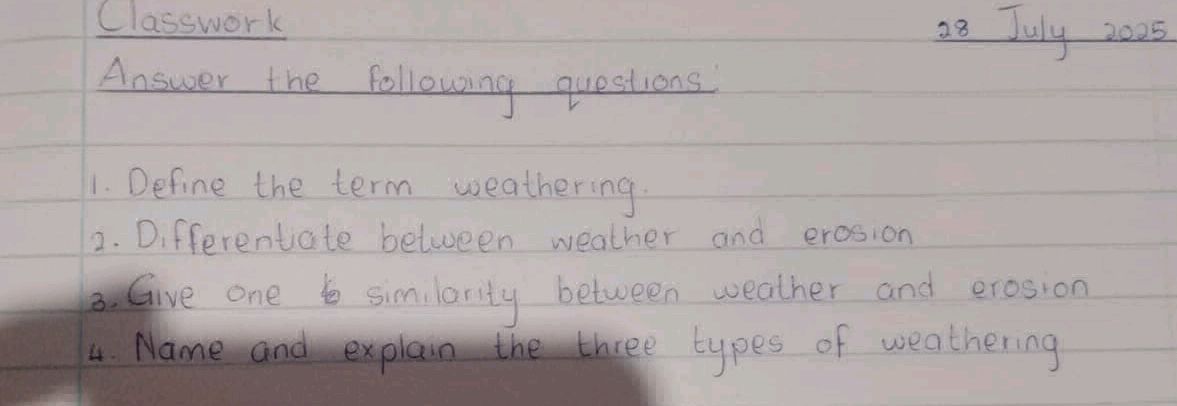 Classwork 28 July 2025
Answer the following questions:
1. Define the term weathering.
2. Differentiate between weather and erosion
3. Give one similarity between weather and erosion
4. Name and explain the three types of weathering